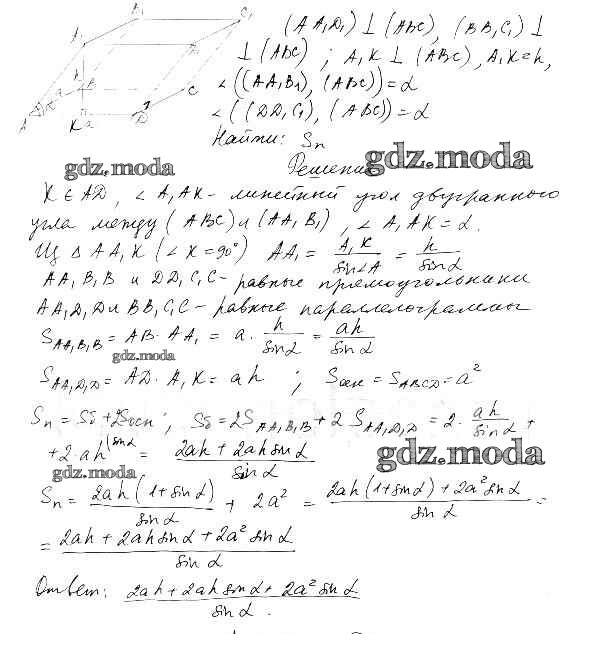 (AA₁D₁) ⊥ (ABC), (BB₁C₁) ⊥
⊥ (ABC) ; A₁K ⊥ (ABC), A₁K=h,
∠((AA₁B₁), (ABC))=α
∠((DD₁C₁), (ABC))=α
Найти: Sп
Решение
gdz.moda
gdz.moda
K ∈ AD, ∠A₁AK - линейный угол двугранного
угла между (ABC) и (AA₁B₁), ∠A₁AK=α.
Из △AA₁K (∠K=90°) AA₁ = A₁K/sin∠A = h/sinα
AA₁B₁B и DD₁C₁C - равные прямоугольники
AA₁D₁D и BB₁C₁C - равные параллелограммы
S AA₁B₁B = AB · AA₁ = a · h/sinα = ah/sinα
gdz.moda
S AA₁D₁D = AD · A₁K = ah ; Sосн = S ABCD = a²
Sп = Sб + 2Sосн ; Sб = 2S AA₁B₁B + 2 S AA₁D₁D = 2 · ah/sinα +
+ 2 · ah (sinα = (2ah + 2ah sinα)/sinα
gdz.moda
gdz.moda
Sп = 2ah(1+sinα)/sinα + 2a² = (2ah(1+sinα) + 2a² sinα)/sinα =
= (2ah + 2ah sinα + 2a² sinα)/sinα
Ответ: (2ah + 2ah sinα + 2a² sinα)/sinα.
A₁
B₁
C₁
D₁
A
α
B
h
K
a
D
C